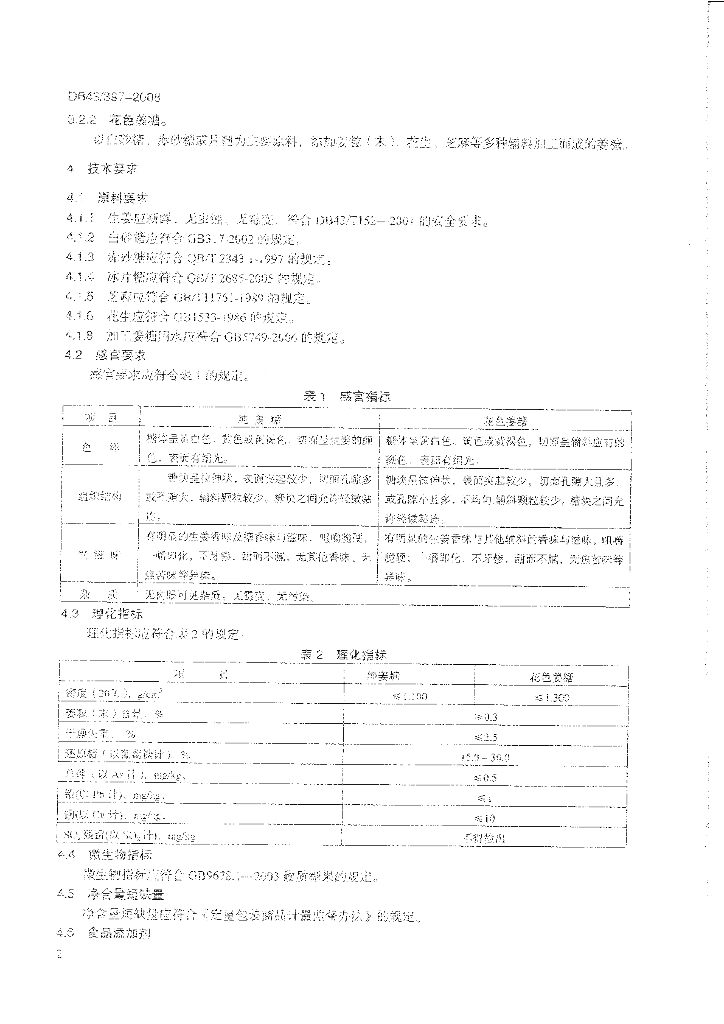 DB43/387-2008
3.2.2 花色姜糖。
以白砂糖、赤砂糖或片糖为主要原料，添加姜粒（末）、花生、芝麻等多种辅料加工制成的姜糖。
4 技术要求
4.1 原料要求
4.1.1 生姜应新鲜、无虫蚀、无霉变，符合 的安全要求。
4.1.2 白砂糖应符合 GB317-2002 的规定。
4.1.3 赤砂糖应符合 QB/T2343.1-1997 的规定。
4.1.4 冰片糖应符合 QB/T2685-2005 的规定。
4.1.5 芝麻应符合 GB/T11761-1989 的规定。
4.1.6 花生应符合 GB1533-1986 的规定。
4.1.8 加工姜糖用水应符合 GB5749-2006 的规定。
4.2 感官要求
感官要求应符合表 1 的规定。
表 1 感官指标
项 目 纯姜糖 花色姜糖
色 泽 糖体呈黄白色、黄色或黄褐色，切面呈 的颜 糖体呈黄白色、黄色或黄褐色，切面呈辅料应有的
色，表面有细光。 颜色，表面有细光。
组织结构 糖块呈 块，表面突起较少，切面孔隙多 糖块呈 块，表面突起较少，切面孔隙大且多，
或孔隙大，辅料颗粒较少，糖块之间允许轻微粘 或孔隙小且多，不均匀，辅料颗粒较少，糖块之间允
连。 许轻微粘连。
气 滋 味 有明显的生姜香味及糖香味与滋味， 脆硬， 有明显的生姜香味与其他辅料的香味与滋味，咀嚼
即化，不牙黏，甜而不腻，无其他杂味，无 脆硬， 即化，不牙黏，甜而不腻，无焦苦味等
焦苦味等异味。 异味。
杂 质 无肉眼可见杂质，无霉变，无
4.3 理化指标
理化指标应符合表 2 的规定。
表 2 理化指标
项 目 纯姜糖 花色姜糖
密度（20℃），g/cm³ ≤1.100 ≤1.300
姜粒（末）含量，% ≤0.3
干燥失重，% ≤3.5
还原糖（以葡萄糖计），% 15.0－30.0
总砷（以 As 计），mg/kg ≤0.5
铅(以 Pb 计)，mg/kg ≤1
铜(以 Cu 计)，mg/kg ≤10
SO₂残留(以 SO₂计)，mg/kg 不得检出
4.4 微生物指标
微生物指标应符合 GB9678.1—2003 硬质糖果的规定。
4.5 净含量短缺量
净含量短缺量应符合《定量包装商品计量监督办法》的规定。
4.6 食品添加剂
2